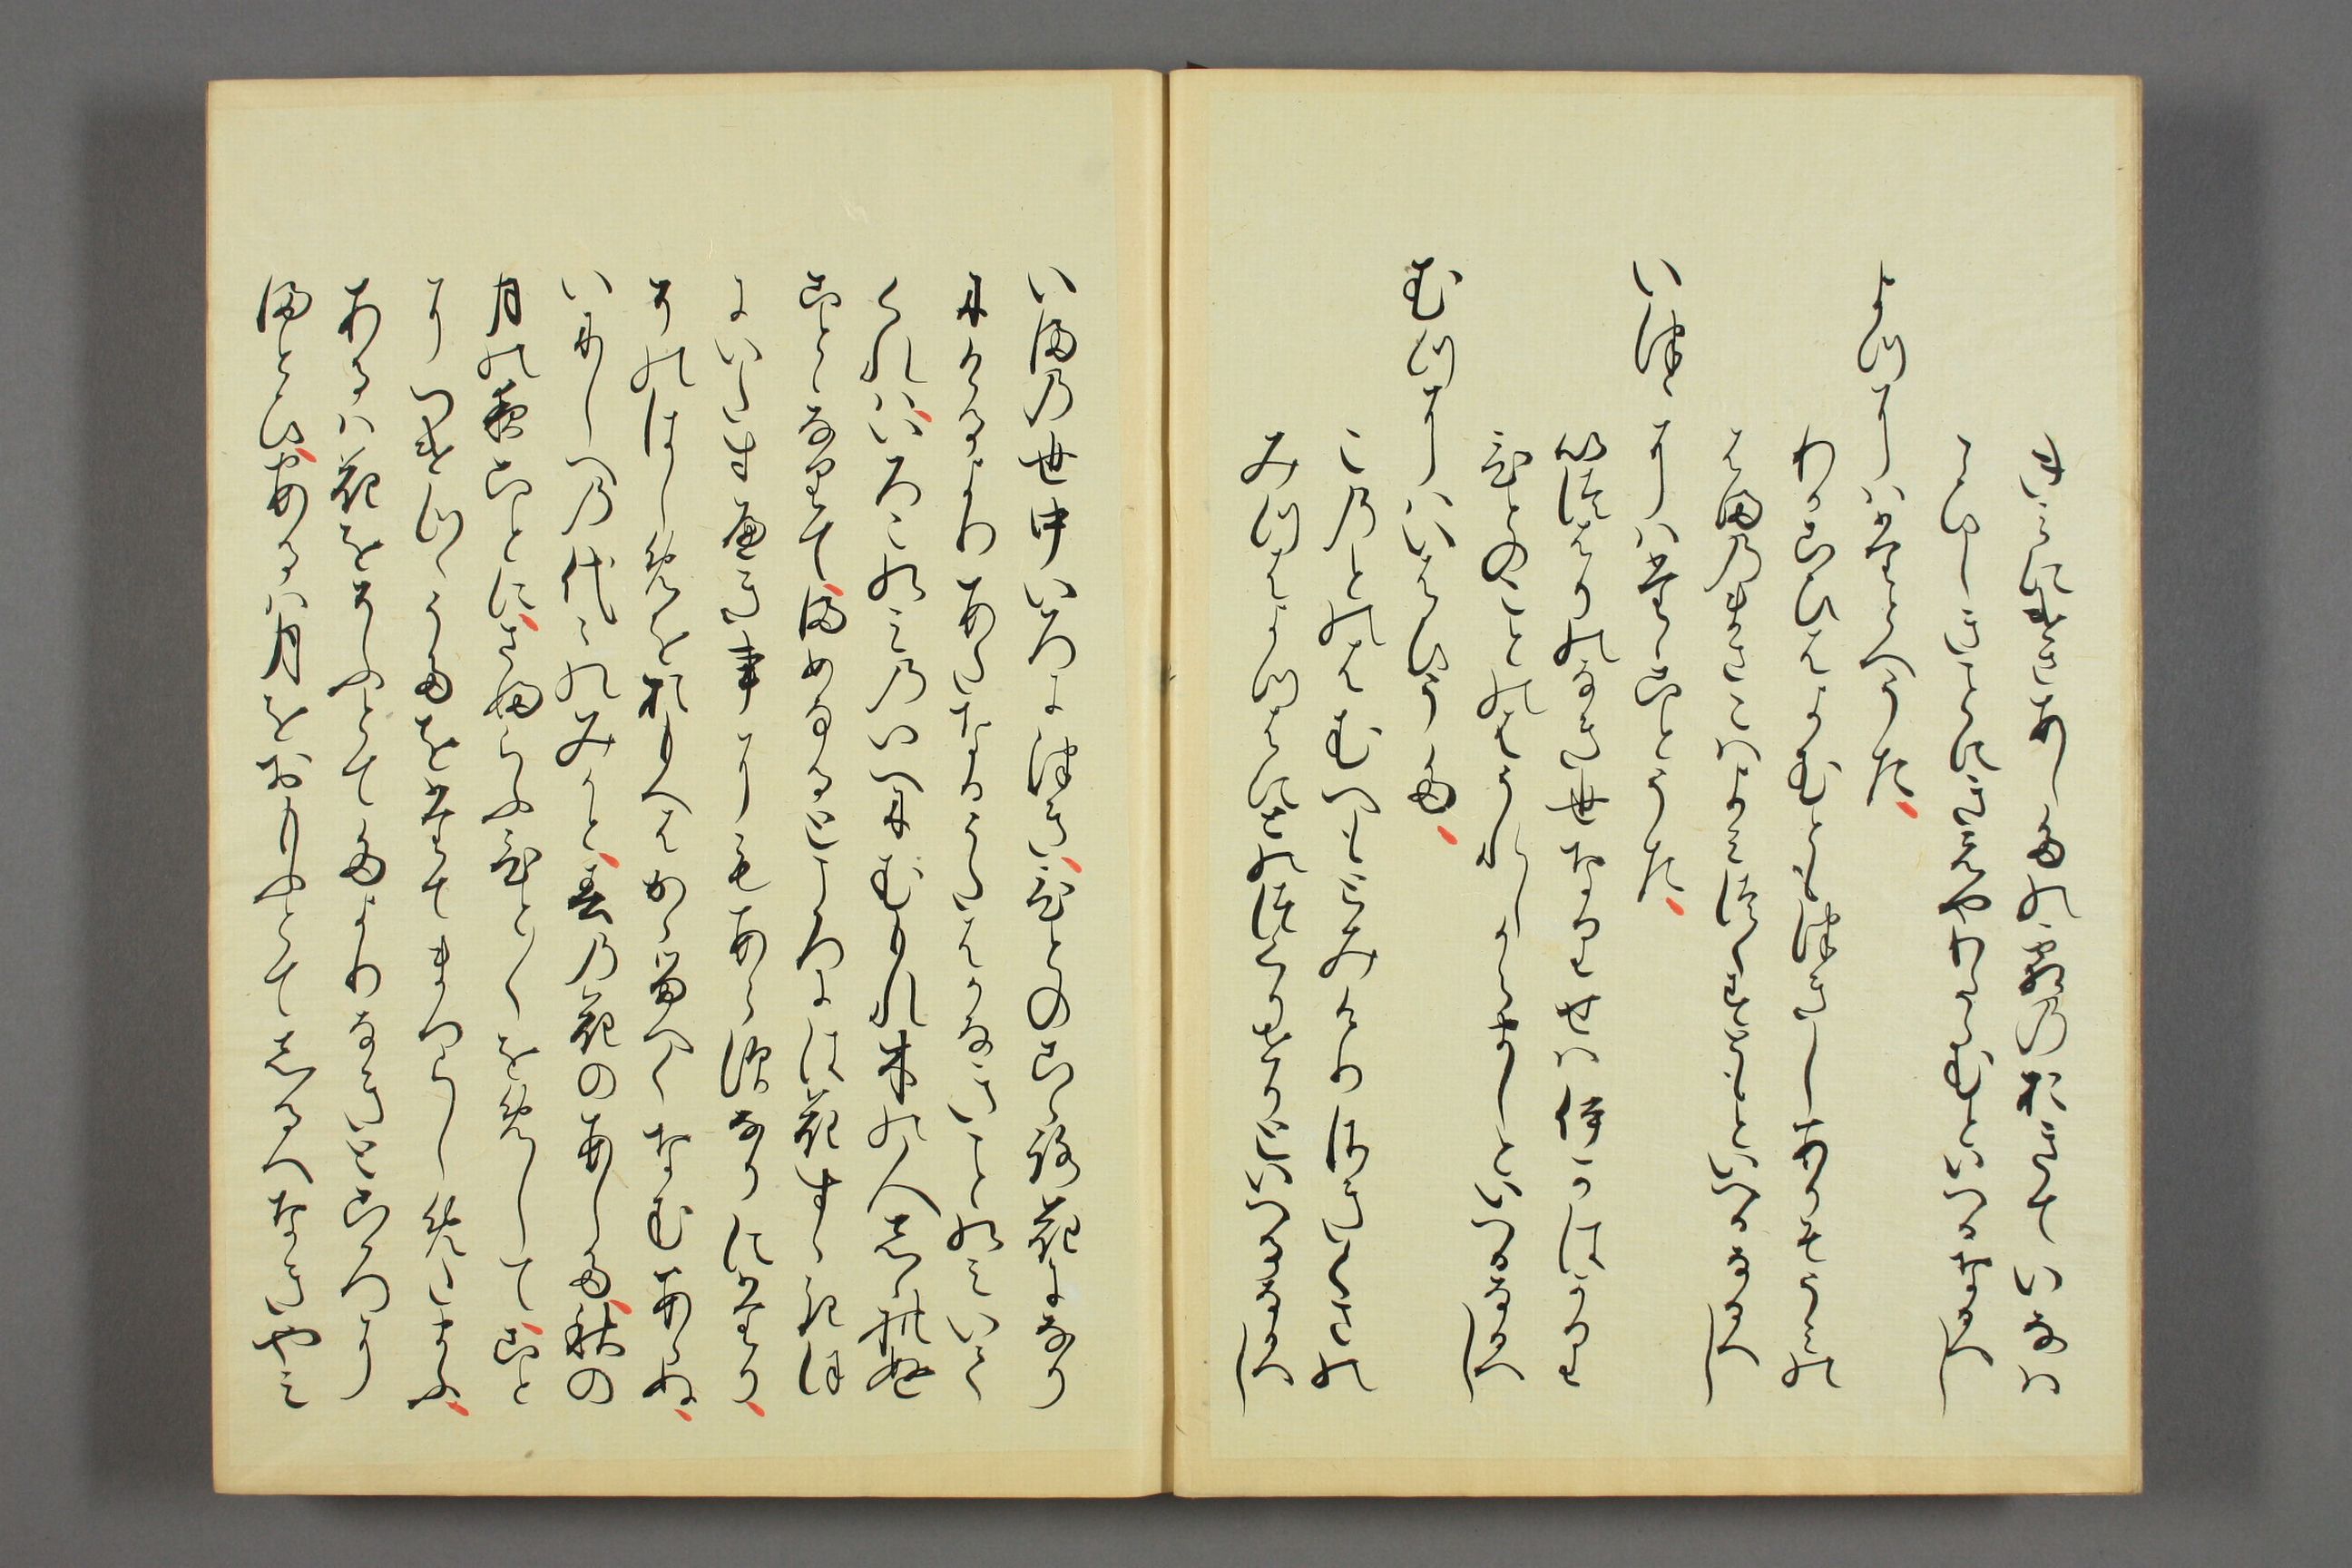 きみにけさあしたのしものおきていなは
こひしきことにきえやわたらむといへるなるへし
よつにはたとへうた
わかこひはよむともつきしありそうみの
はまのまさこはよみつくすともといへるなるへし
いつゝにはたゝことうた
いつはりのなき世なりせはいかはかり
ひとのことのはうれしからましといへるなるへし
むつにはいはひうた
このとのはむへもとみけりさきくさの
みつはよつはにとのつくりせりといへるなるへし
いまの世中いろにつきひとのこゝろ花になり
にけるよりあたなるうたはかなきことのみいて
くれはいろこのみのいへにむもれ木の人しれぬ
こととなりてまめなるところには花すゝきほ
にいたすへき事にもあらすなりにたり
そのはしめをおもへはかゝるへくなむあらぬ
いにしへの代々のみかと春の花のあした秋の
月の夜ことにさふらふひとゝゝをめしてこと
につけつゝうたをたてまつらしめたまふ
あるは花をそふとてたよりなきところに
まとひあるは月をおもふとてしるへなきやみ